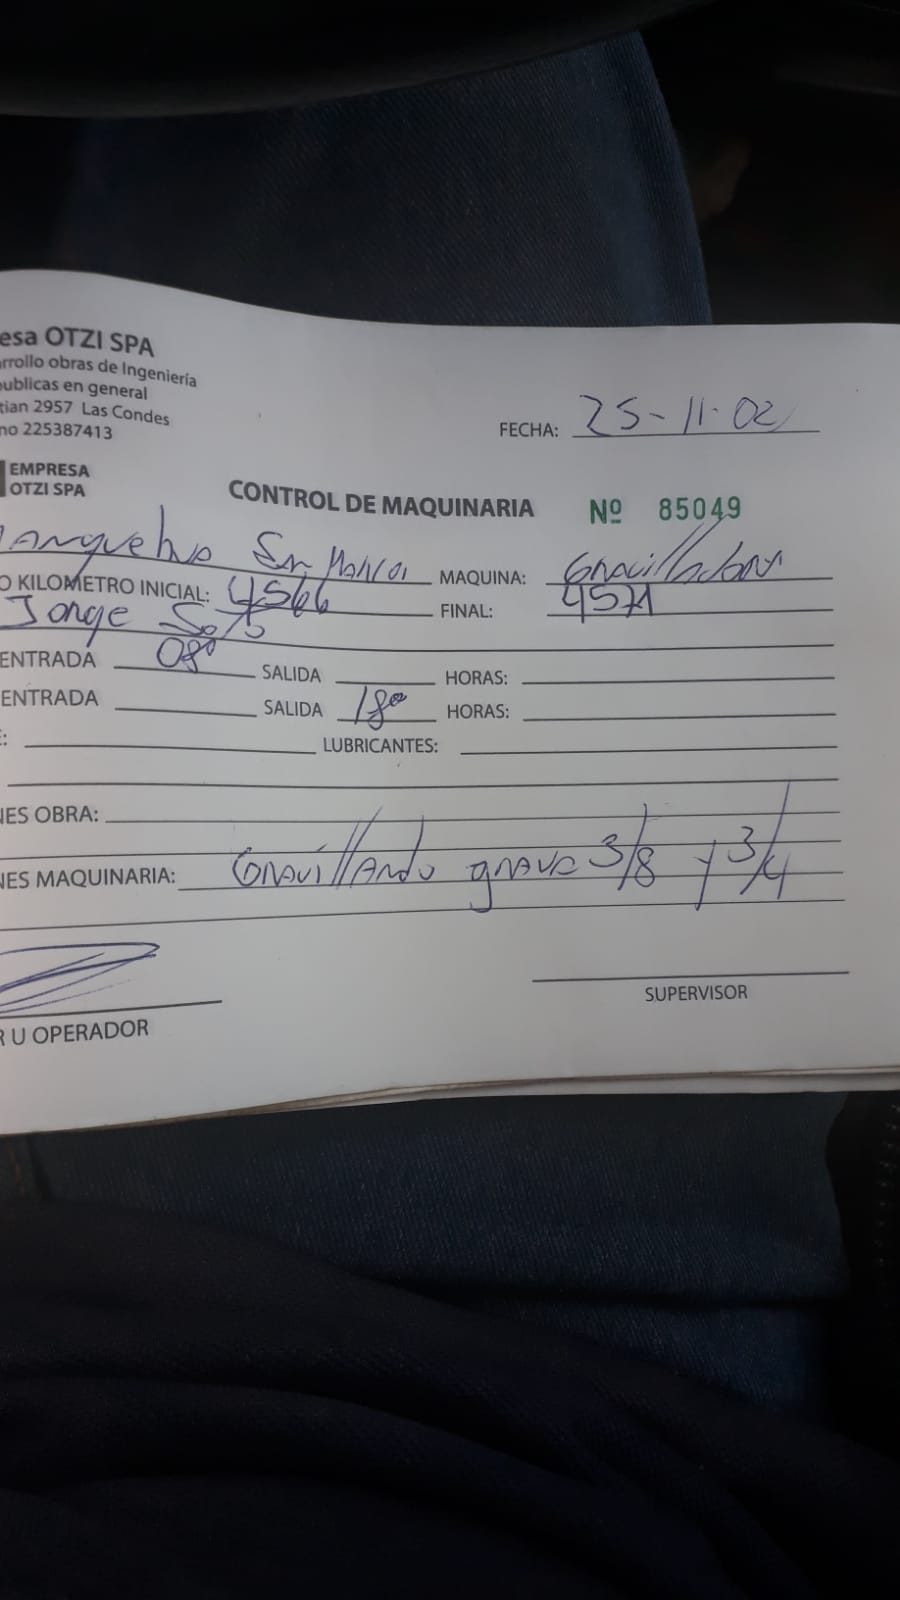 esa OTZI SPA
rrollo obras de Ingeniería
publicas en general
tian 2957 Las Condes
no 225387413
FECHA: 25-11-02
EMPRESA
OTZI SPA
CONTROL DE MAQUINARIA Nº 85049
MAQUINA: Gravilladora
O KILOMETRO INICIAL: 4566 FINAL: 4571
Jorge Soto
ENTRADA 08⁰⁰ SALIDA HORAS:
ENTRADA SALIDA 18⁰⁰ HORAS:
E: LUBRICANTES:
NES OBRA:
NES MAQUINARIA: Gravillando grava 3/8 y 3/4
R U OPERADOR
SUPERVISOR